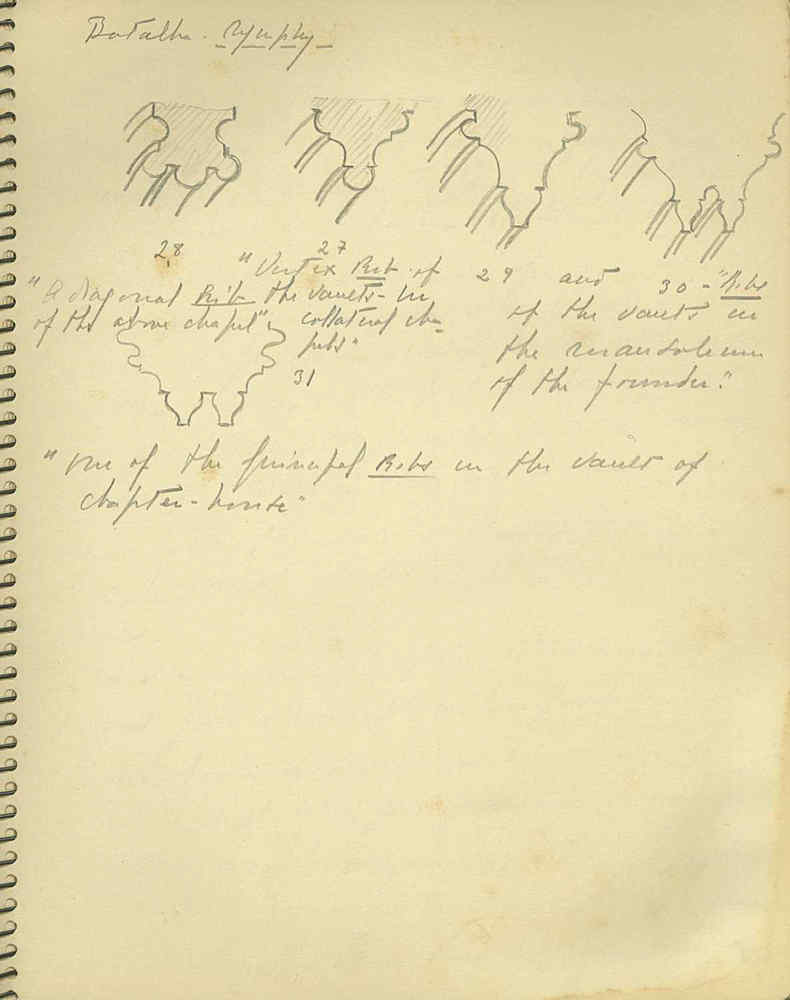 Batalha.
28
27
29 and 30 - "Ribs
"A diagonal Rib
of the above chapel"
"Vertex Rib of
the vaults - in
collateral cha-
pels"
of the vaults in
the mausoleum
of the founder."
31
"One of the principal Ribs in the vault of
chapter-house"